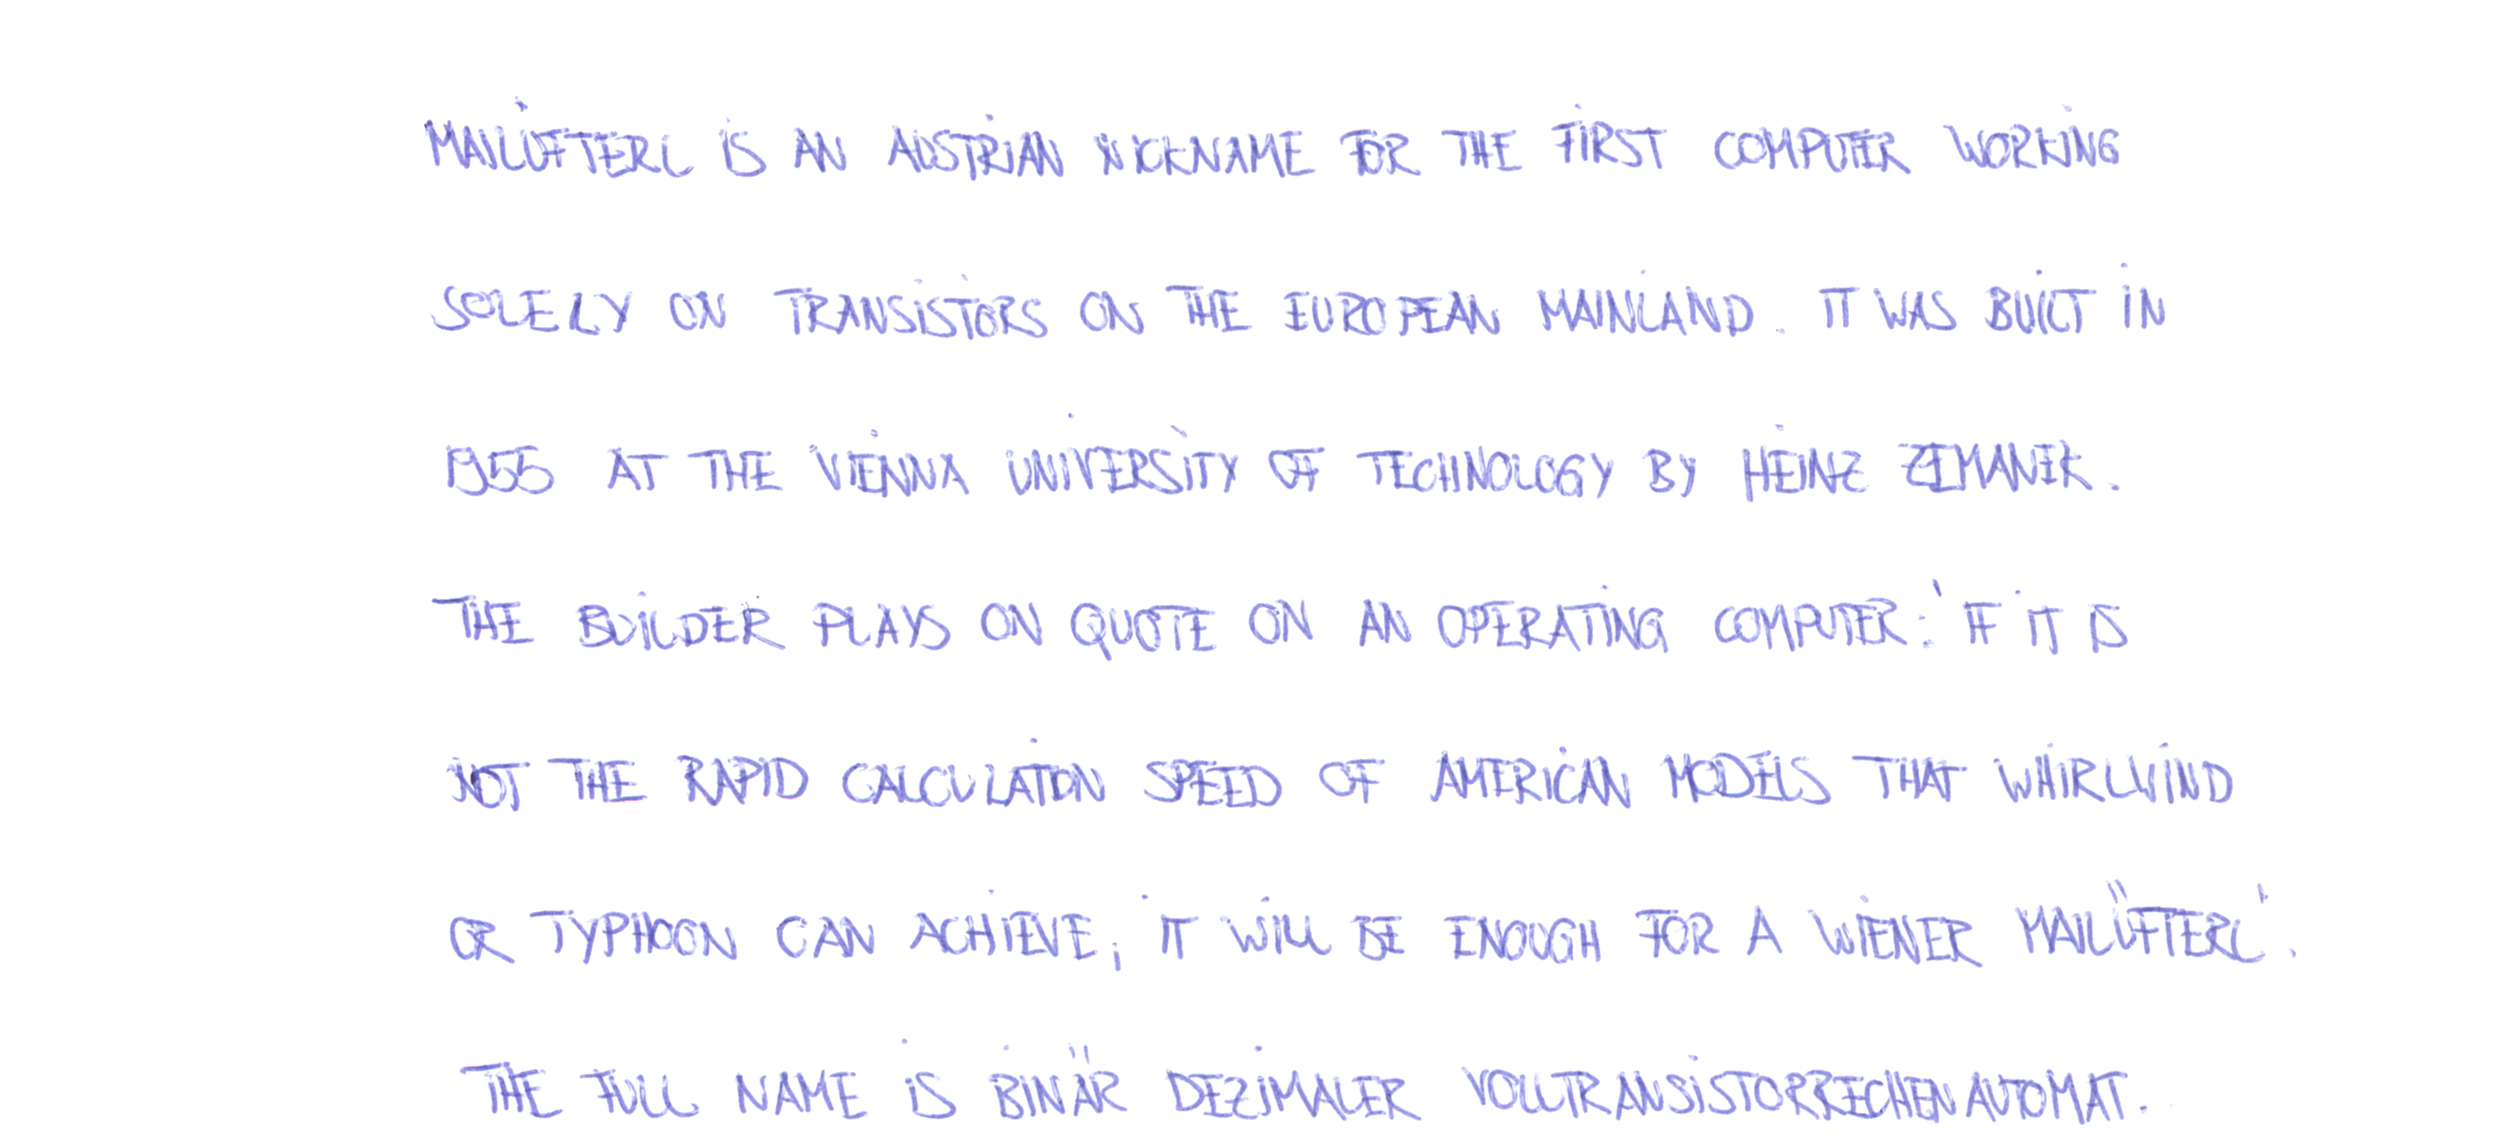 MAILÜFTERL IS AN AUSTRIAN NICKNAME FOR THE FIRST COMPUTER WORKING
SOLELY ON TRANSISTORS ON THE EUROPEAN MAINLAND. IT WAS BUILT IN
1955 AT THE VIENNA UNIVERSITY OF TECHNOLOGY BY HEINZ ZEMANEK.
THE BUILDER PLAYS ON QUOTE ON AN OPERATING COMPUTER: 'IF IT IS
NOT THE RAPID CALCULATION SPEED OF AMERICAN MODELS THAT WHIRLWIND
OR TYPHOON CAN ACHIEVE, IT WILL BE ENOUGH FOR A WIENER MAILÜFTERL'.
THE FULL NAME IS BINÄR DEZIMALER VOLLTRANSISTORRECHENAUTOMAT.